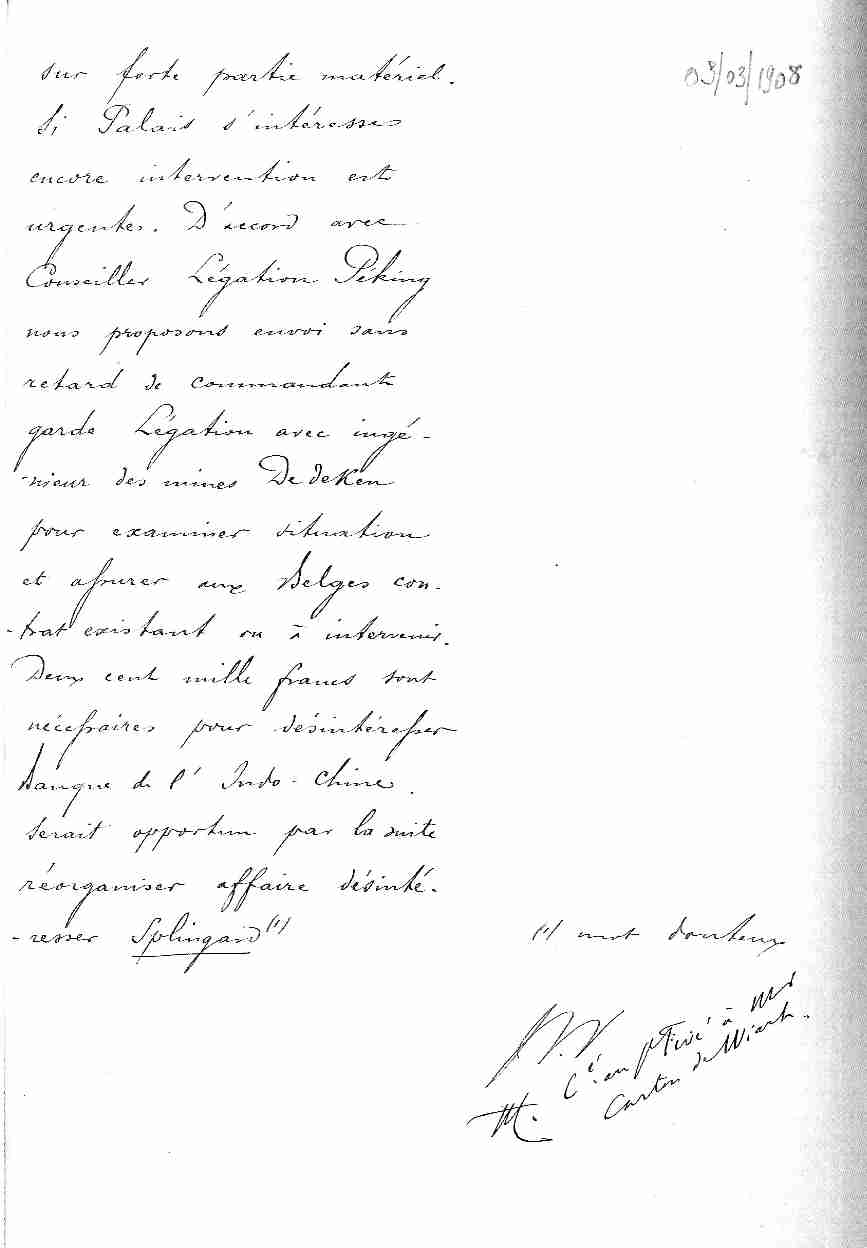 03/03/1908
sur forte partie matériel.
Si Palais s'intéresse
encore intervention est
urgente. D'accord avec
Conseiller Légation Péking
nous proposons envoi sans
retard de commandant
garde Légation avec ingé-
-nieur des mines De deken
pour examiner situation
et assurer aux Belges con-
-trat existant ou à intervenir.
Deux cent mille francs sont
nécessaires pour désintéresser
Banque de l'Indo-Chine.
Serait opportun par la suite
réorganiser affaire désinté-
-resser Splingard (1)
(1) mot douteux
Cé. au privé à Mr
Carton de Wiart.